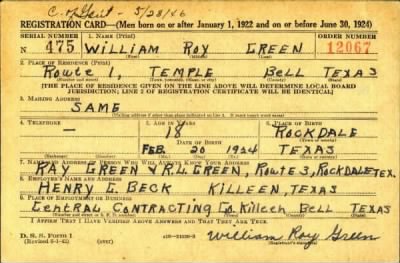 5/28/46
REGISTRATION CARD—(Men born on or after January 1, 1922 and on or before June 30, 1924)
SERIAL NUMBER 1. NAME (Print) ORDER NUMBER
N 475 WILLIAM ROY GREEN 12067
2. PLACE OF RESIDENCE (Print)
Route 1, TEMPLE BELL TEXAS
[THE PLACE OF RESIDENCE GIVEN ON THE LINE ABOVE WILL DETERMINE LOCAL BOARD
JURISDICTION; LINE 2 OF REGISTRATION CERTIFICATE WILL BE IDENTICAL]
3. MAILING ADDRESS
SAME
[Mailing address if other than place indicated on line 2. If same insert word same]
4. TELEPHONE 5. AGE IN YEARS 6. PLACE OF BIRTH
— 18 ROCKDALE
DATE OF BIRTH
FEB. 20 1924 TEXAS
7. NAME AND ADDRESS OF PERSON WHO WILL ALWAYS KNOW YOUR ADDRESS
RAY GREEN & R.L. GREEN, Route 3, ROCKDALE TEX.
8. EMPLOYER'S NAME AND ADDRESS
HENRY C. BECK KILLEEN, TEXAS
9. PLACE OF EMPLOYMENT OR BUSINESS
CENTRAL CONTRACTING Co. Killeen BELL TEXAS
I AFFIRM THAT I HAVE VERIFIED ABOVE ANSWERS AND THAT THEY ARE TRUE.
D. S. S. Form 1
William Roy Green